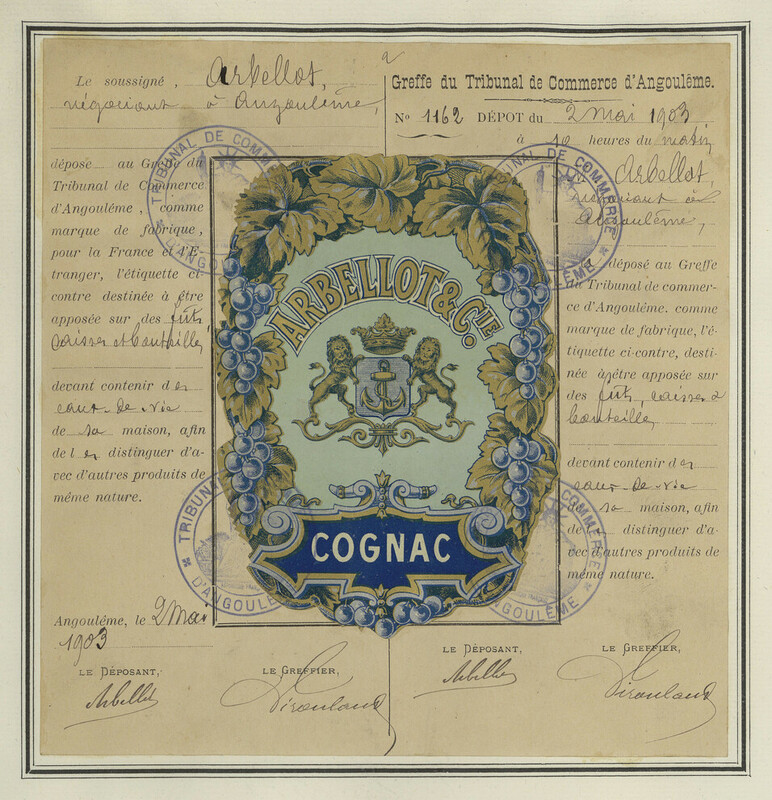 Le soussigné, Arbellot,
négociant à Angoulême,
déposé au Greffe du
Tribunal de Commerce
d'Angoulême, comme
marque de fabrique,
pour la France et l'É-
tranger, l'étiquette ci-
contre destinée à être
apposée sur des fûts,
caisses et bouteilles
devant contenir des
eaux-de-vie
de sa maison, afin
de les distinguer d'a-
vec d'autres produits de
même nature.
Angoulême, le 2 Mai
1903
LE DÉPOSANT,
Arbellot
LE GREFFIER,
TRIBUNAL DE COMM
D'ANGOU
TRIBUNAL
D'ANGOULÊME
ARBELLOT & CIE.
COGNAC
Greffe du Tribunal de Commerce d'Angoulême.
No 1162 DÉPOT du 2 mai 1903
à 10 heures du matin
Arbellot,
négociant à
Angoulême,
déposé au Greffe
du Tribunal de commer-
ce d'Angoulême. comme
marque de fabrique, l'é-
tiquette ci-contre, desti-
née à être apposée sur
des fûts, caisses &
bouteilles
devant contenir des
eaux-de-vie
de sa maison, afin
de distinguer d'a-
vec d'autres produits de
même nature.
LE DÉPOSANT,
Arbellot
LE GREFFIER,
UNAL DE COMMERCE
LÊME
COMMERCE
NGOULÊME